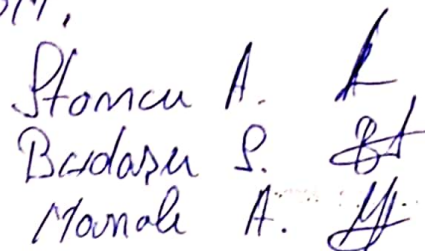 Stancu A.
Budașu S.
Manole A.